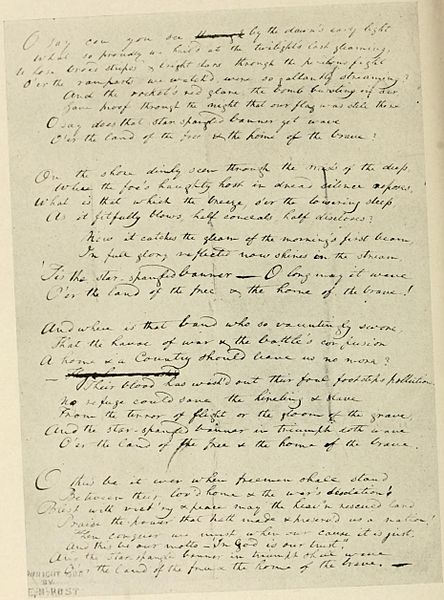 O say can you see by the dawn's early light
What so proudly we hail'd at the twilight's last gleaming,
Whose broad stripes & bright stars through the perilous fight
O'er the ramparts we watch'd, were so gallantly streaming?
And the rocket's red glare, the bomb bursting in air,
Gave proof through the night that our flag was still there
O say does that star-spangled banner yet wave
O'er the land of the free & the home of the brave?
On the shore dimly seen through the mists of the deep,
Where the foe's haughty host in dread silence reposes,
What is that which the breeze, o'er the towering steep,
As it fitfully blows, half conceals half discloses?
Now it catches the gleam of the morning's first beam,
In full glory reflected now shines in the stream,
'Tis the star-spangled banner — O long may it wave
O'er the land of the free & the home of the brave!
And where is that band who so vauntingly swore,
That the havoc of war & the battle's confusion
A home & a Country should leave us no more?
— Their blood has wash'd out their foul footstep's pollution.
No refuge could save the hireling & slave
From the terror of flight or the gloom of the grave,
And the star-spangled banner in triumph doth wave
O'er the land of the free & the home of the brave.
O thus be it ever when freemen shall stand
Between their lov'd home & the war's desolation!
Blest with vict'ry & peace may the heav'n rescued land
Praise the power that hath made & preserv'd us a nation!
Then conquer we must, when our cause it is just,
And this be our motto — "In God is our trust,"
And the star-spangled banner in triumph shall wave
O'er the land of the free & the home of the brave. —
BY